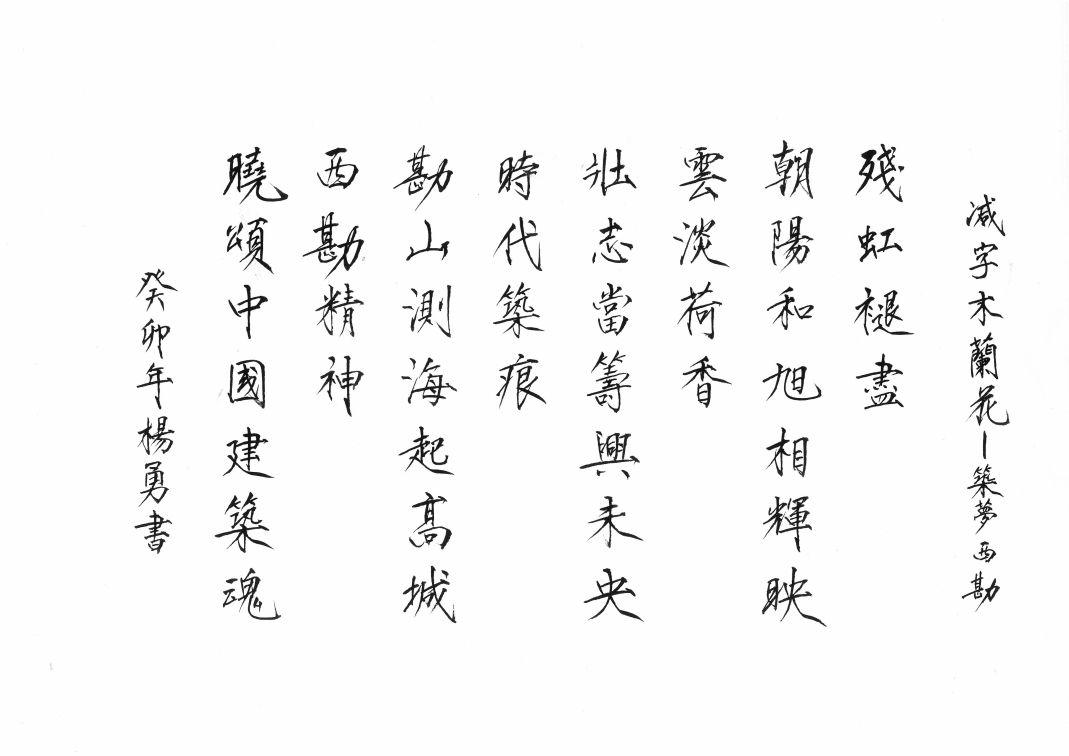 减字木蘭花－築夢西勘
殘虹褪盡
朝陽和旭相輝映
雲淡荷香
壯志當籌興未央
時代築痕
勘山測海起高城
西勘精神
曉頌中國建築魂
癸卯年楊勇書